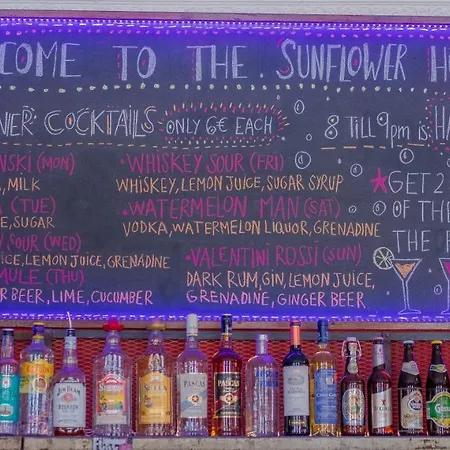 COME TO THE SUNFLOWER HO
NER COCKTAILS ONLY 6€ EACH 8 TILL 9pm is HA
NSKI (MON) • WHISKEY SOUR (FRI)
, MILK WHISKEY, LEMON JUICE, SUGAR SYRUP GET 2
A (TUE) • WATERMELON MAN (SAT) OF THE
E, SUGAR VODKA, WATERMELON LIQUOR, GRENADINE
Y SOUR (WED) THE
ICE, LEMON JUICE, GRENADINE • VALENTINI ROSSI (SUN)
MULE (THU) DARK RUM, GIN, LEMON JUICE,
R BEER, LIME, CUCUMBER GRENADINE, GINGER BEER
JIM BEAM PASCAS PASCAS